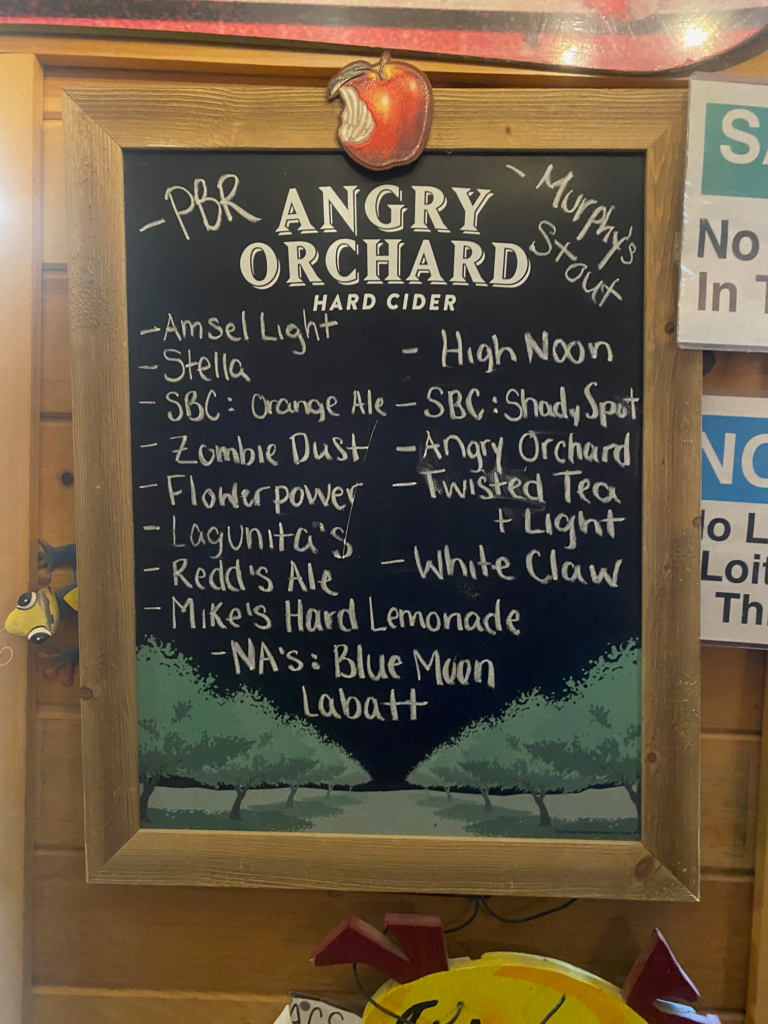 - PBR
ANGRY
ORCHARD
HARD CIDER
- Murphy's
Stout
- Amsel Light
- Stella
- SBC: Orange Ale
- Zombie Dust
- Flowerpower
- Lagunita's
- Redd's Ale
- Mike's Hard Lemonade
- High Noon
- SBC: Shady Spot
- Angry Orchard
- Twisted Tea
+ Light
- White Claw
- NA's: Blue Moon
Labatt
SA
No
In T
NO
No L
Loit
Th